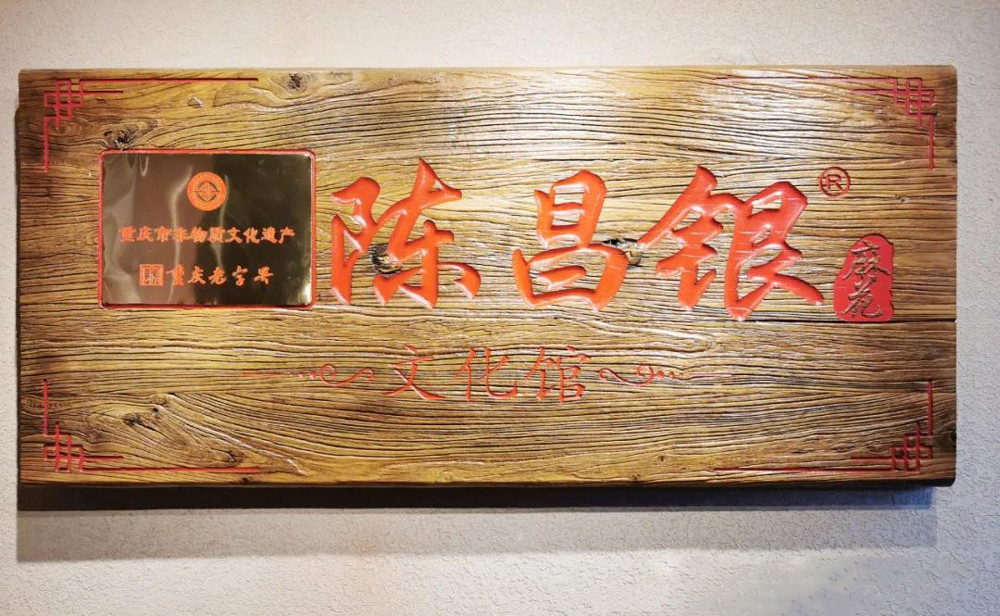 重庆市非物质文化遗产
重庆老字号
陈昌银®
麻花
文化馆